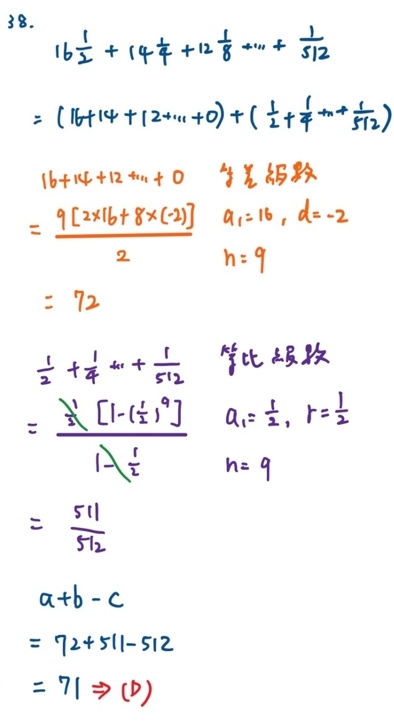 38.
16 1/2 + 14 1/4 + 12 1/8 + ... + 1/512
= (16+14+12+...+0) + (1/2 + 1/4 + ... + 1/512)
16+14+12+...+0 等差級數
= 9[2×16+8×(-2)]/2 a₁=16, d=-2
n=9
= 72
1/2 + 1/4 ... + 1/512 等比級數
= 1/2 [1-(1/2)⁹] / 1-1/2 a₁=1/2, r=1/2
n=9
= 511/512
a+b-c
= 72+511-512
= 71 ⇒ (D)